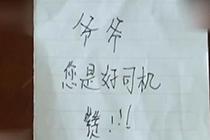 爷爷
您是好司机
赞!!!